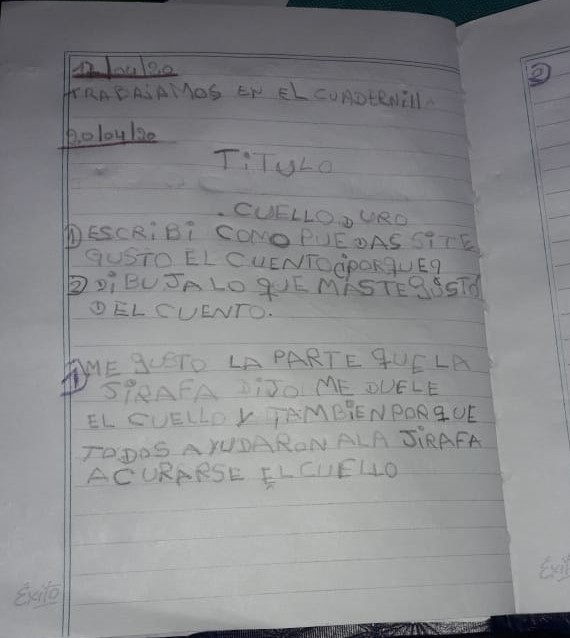 17/04/20
TRABAJAMOS EN EL CUADERNILL
20/04/20
TiTULO
. CUELLO DURO
① ESCRiBi COMO PUEDAS Si TE
GUSTO EL CUENTO ¿PORQUE?
② DiBUJA LO QUE MAS TE GUSTO
DEL CUENTO.
① ME GUSTO LA PARTE QUE LA
JiRAFA DiJO ME DUELE
EL CUELLO Y TAMBiEN PORQUE
TODOS AYUDARON A LA JiRAFA
A CURARSE EL CUELLO
Éxito
②
Éxi